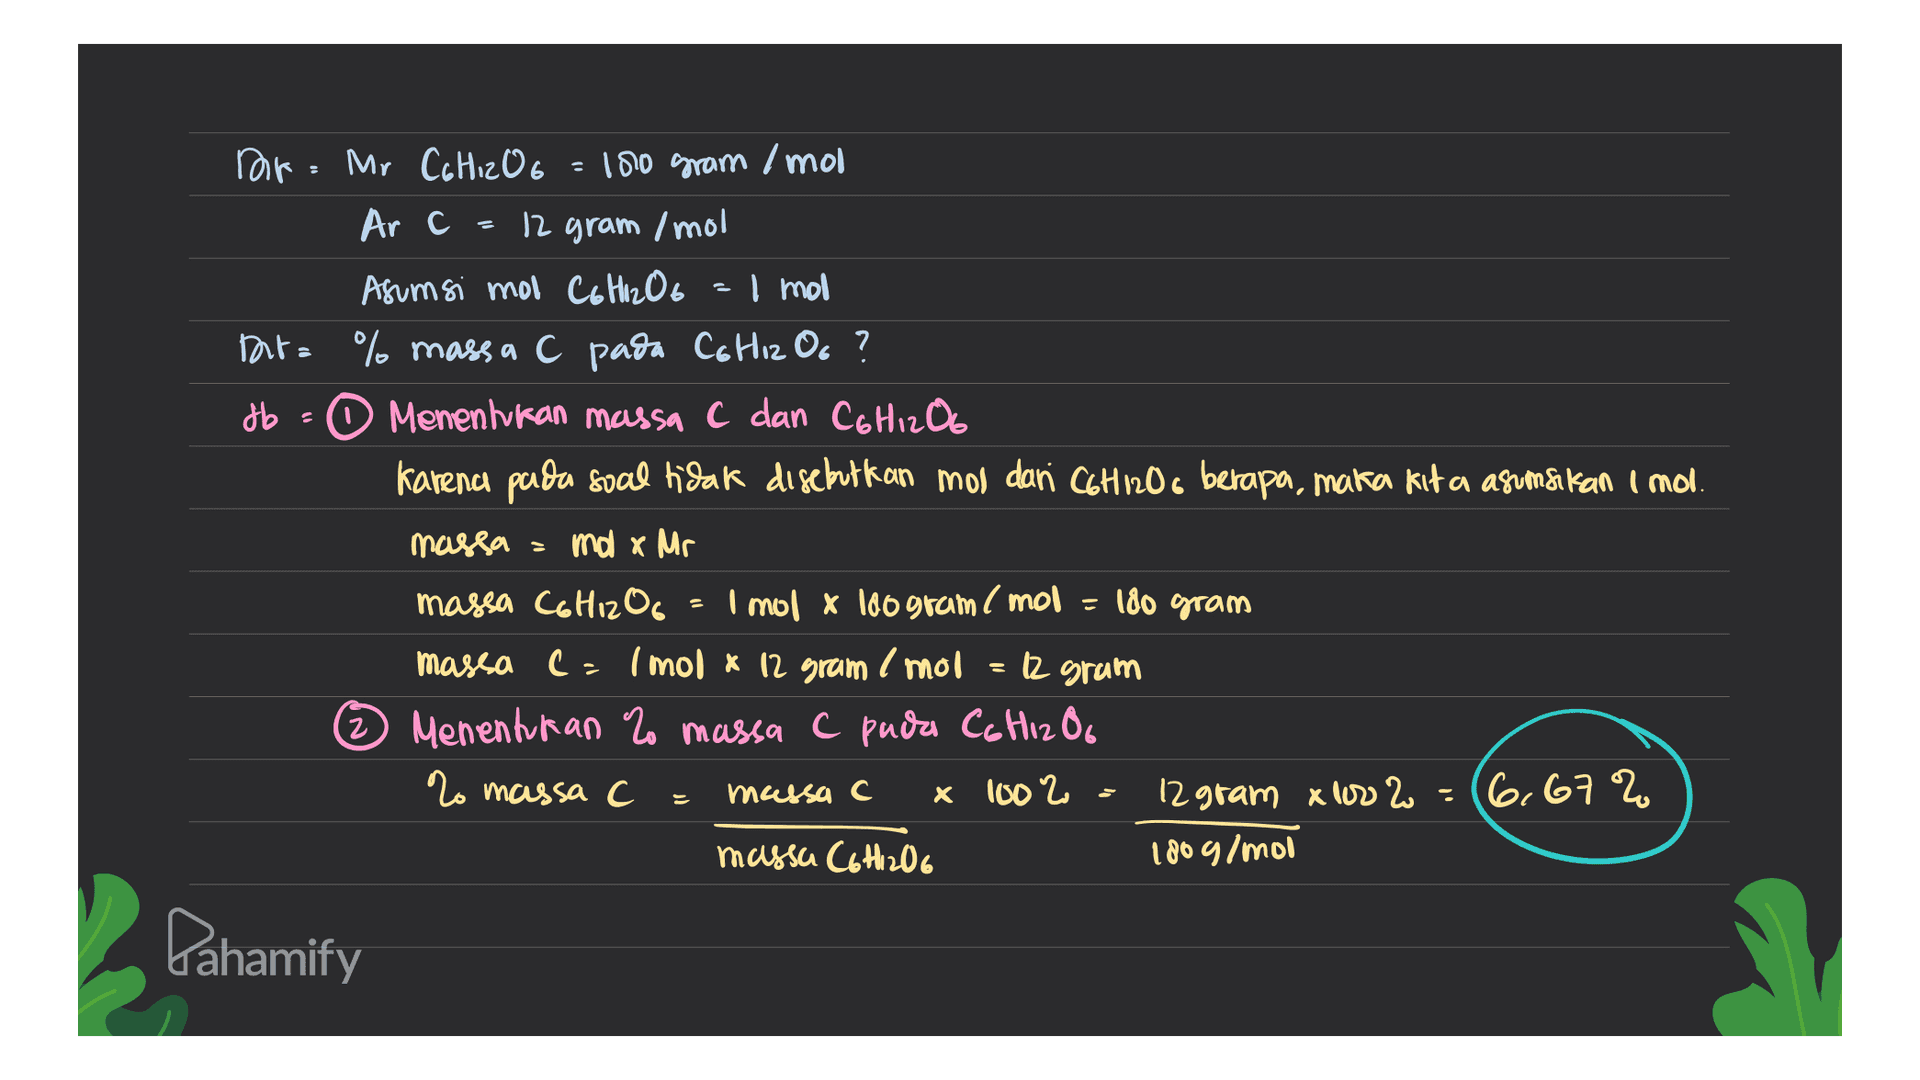 Dik = Mr C6H12O6 = 180 gram / mol
Ar C = 12 gram / mol
Asumsi mol C6H12O6 = 1 mol
Dit = % massa C pada C6H12O6 ?
Jb = ① Menentukan massa C dan C6H12O6
Karena pada soal tidak disebutkan mol dari C6H12O6 berapa, maka kita asumsikan 1 mol.
massa = mol x Mr
massa C6H12O6 = 1 mol x 180 gram / mol = 180 gram
massa C = 1 mol x 12 gram / mol = 12 gram
② Menentukan % massa C pada C6H12O6
% massa C = massa C x 100 % = 12 gram x 100 % = 6,67 %
massa C6H12O6 180 g/mol
Pahamify